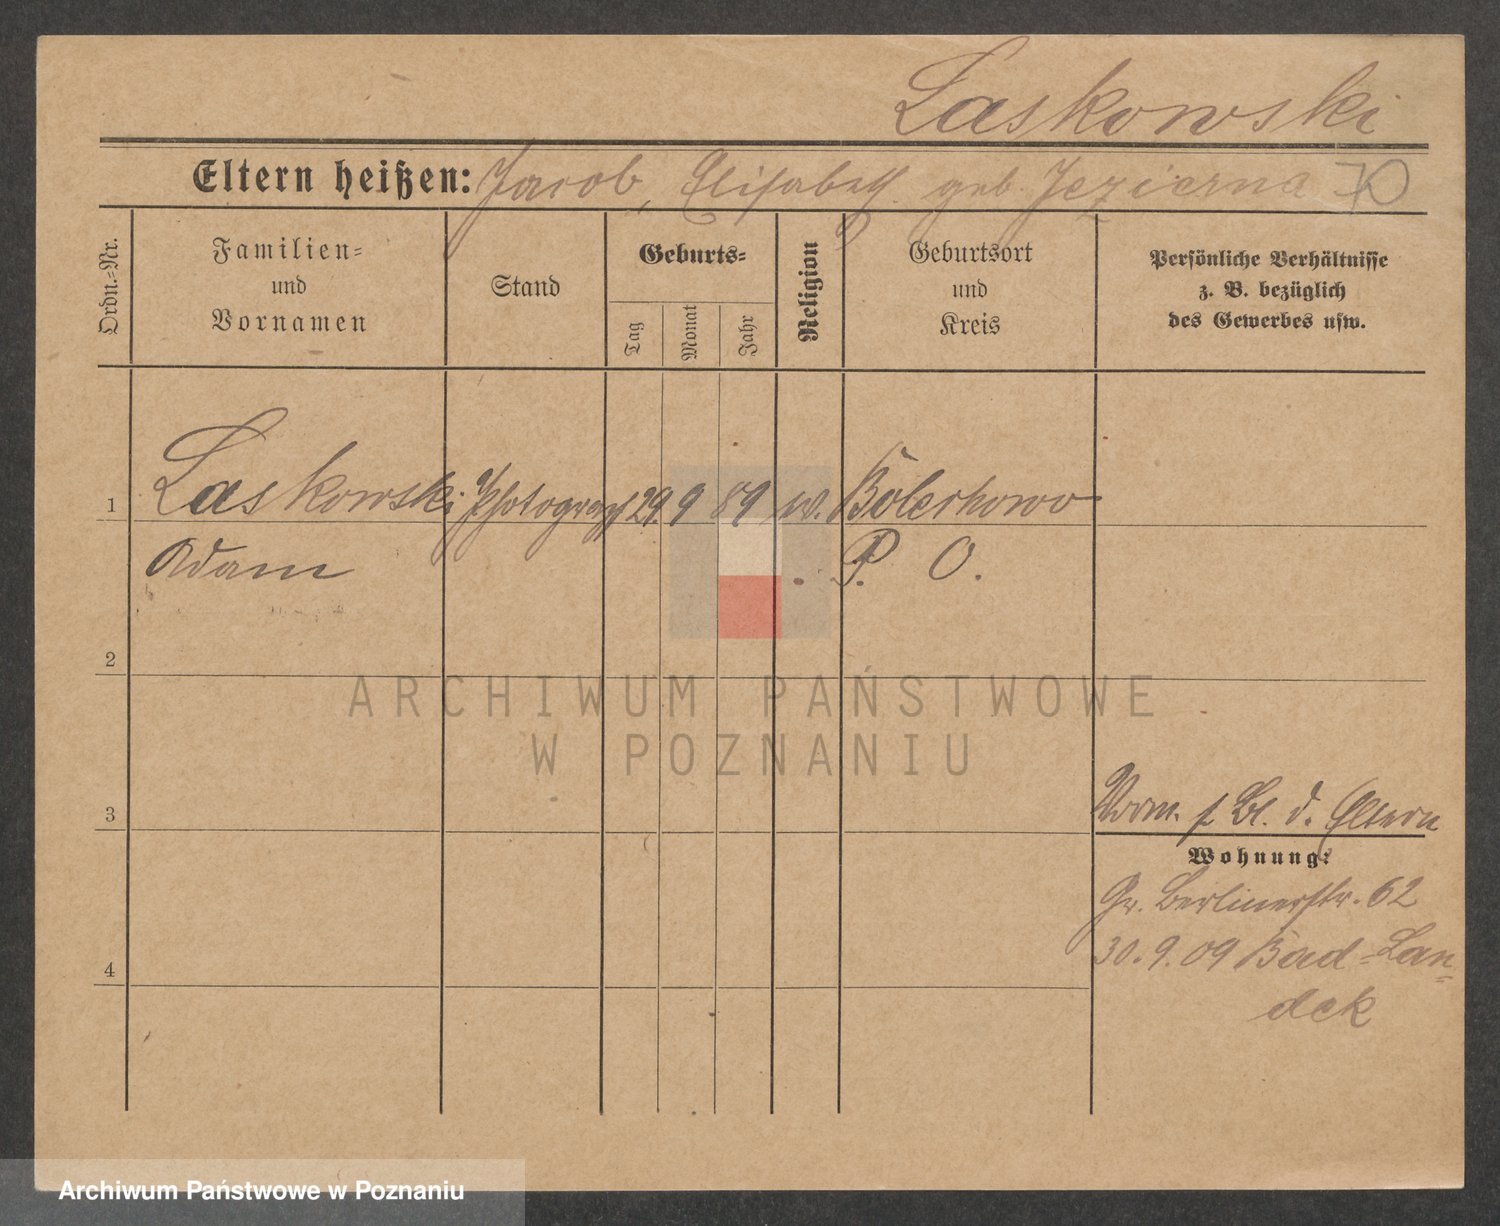 Laskowski
Eltern heißen: Jacob, Elisabeth geb. Jezierna 70
Ordn.-Nr.
Familien-
und
Vornamen
Stand
Geburts-
Tag
Monat
Jahr
Religion
Geburtsort
und
Kreis
Persönliche Verhältnisse
z. B. bezüglich
des Gewerbes usw.
1 Laskowski Photograph 29. 9 89 Bolechowo
Adam P. O.
2
ARCHIWUM PAŃSTWOWE
W POZNANIU
3
Bl. d. Eltern
Wohnung:
Gr. Berlinerstr. 62
30. 9. 09 Bad-Lan-
deck
4
Archiwum Państwowe w Poznaniu